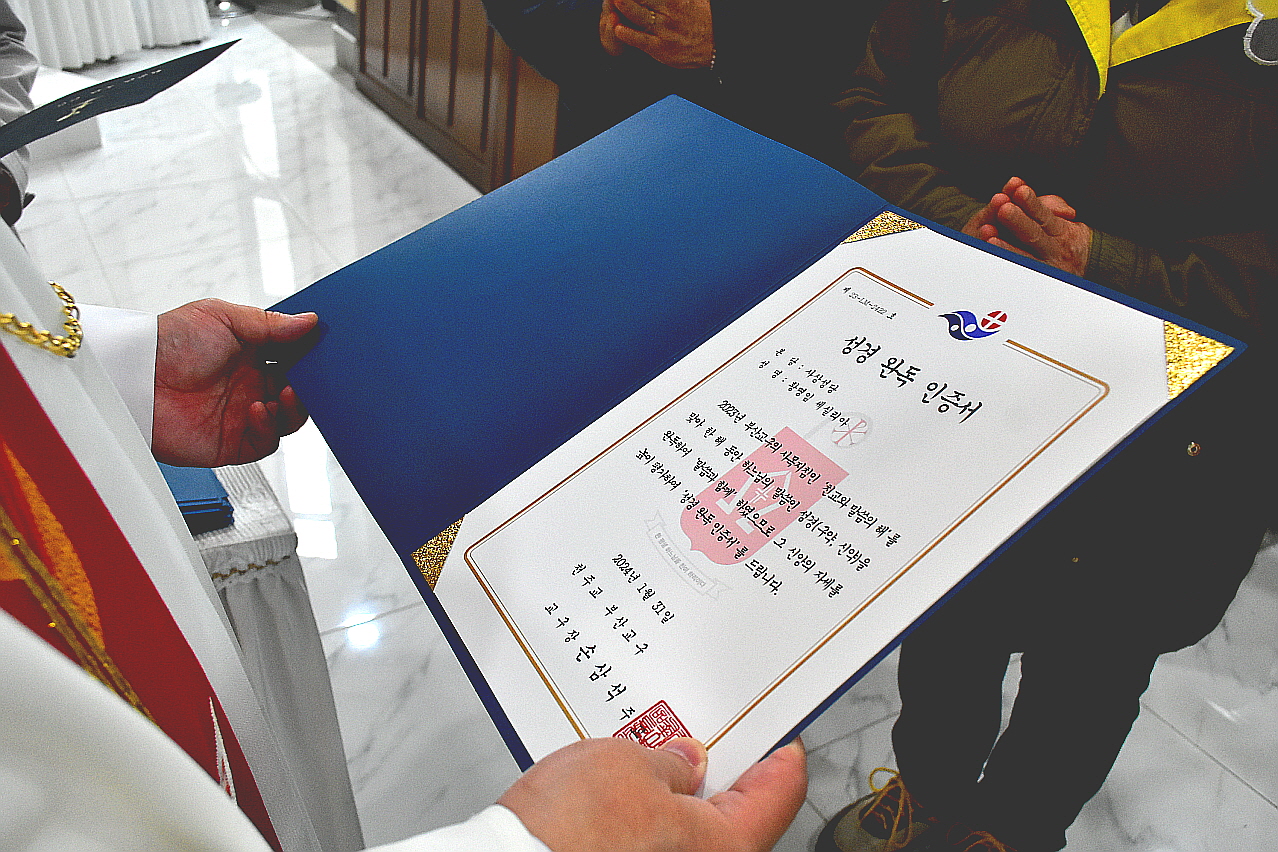 제 23-LM-2422 호
성경 완독 인증서
본 당 : 사상성당
성 명 : 황영임 세실리아
2023년 부산교구의 사목지침인 '친교와 말씀의 해'를
맞아 한 해 동안 하느님의 말씀인 성경(구약, 신약)을
완독하여 '말씀과 함께' 하였으므로 그 신앙의 자세를
높이 평가하여 '성경 완독 인증서'를 드립니다.
2024년 1월 31일
천 주 교 부 산 교 구
교 구 장 손 삼 석 주